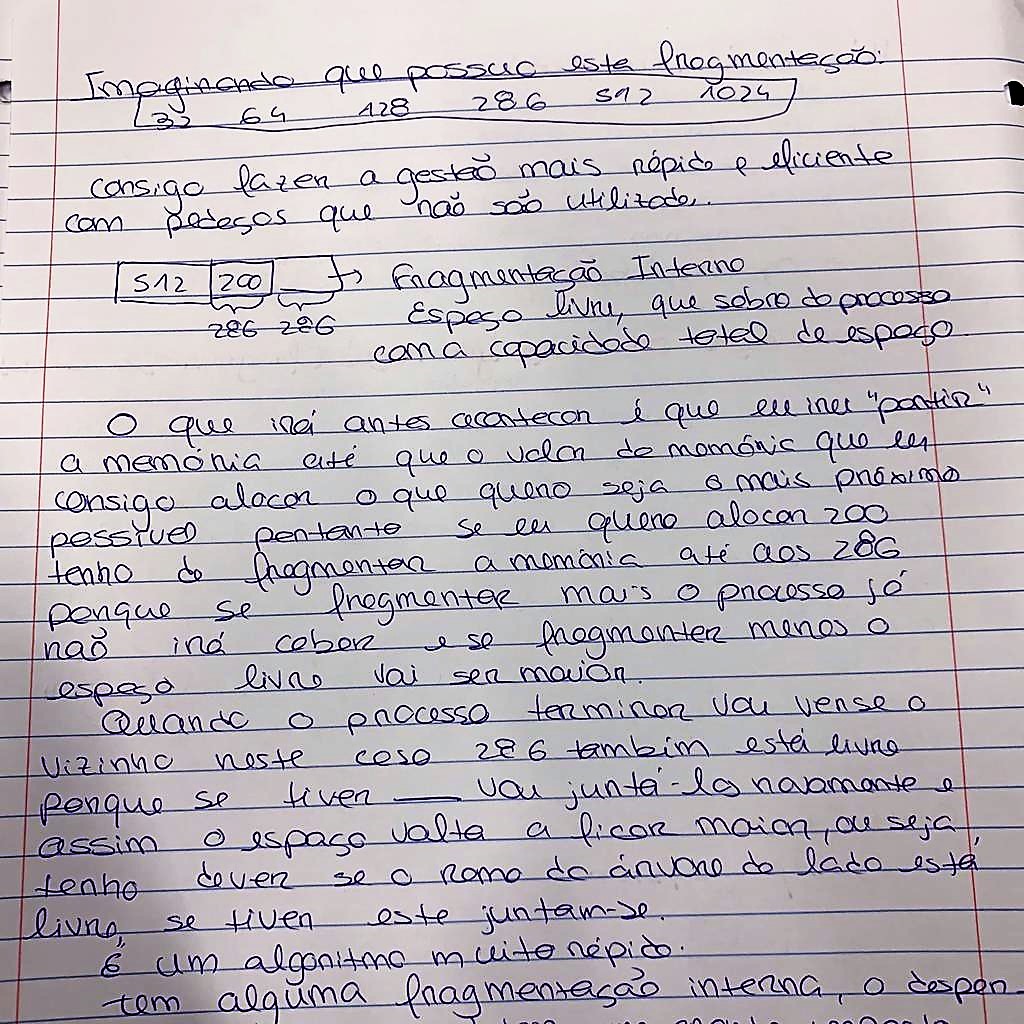 Imaginando que possuo esta fragmentação:
32 64 128 286 512 1024
consigo fazer a gestão mais rápido e eficiente
com pedaços que não são utilizado.
512 200 → Fragmentação Interno
286 286 Espaço livre, que sobra do processo
com a capacidade total de espaço
O que irá antes acontecer é que eu irei "partir"
a memória até que o valor de memória que eu
consigo alocar o que quero seja o mais próximo
possível portanto se eu quero alocar 200
tenho de fragmentar a memória até aos 286
porque se fragmentar mais o processo já
não irá caber e se fragmentar menos o
espaço livre vai ser maior.
Quando o processo terminar vou ver se o
vizinho neste caso 286 também está livre
porque se tiver vou juntá-los novamente e
assim o espaço volta a ficar maior, ou seja,
tenho de ver se o ramo da árvore do lado está
livre, se tiver este juntam-se.
É um algoritmo muito rápido.
tem alguma fragmentação interna, o desper